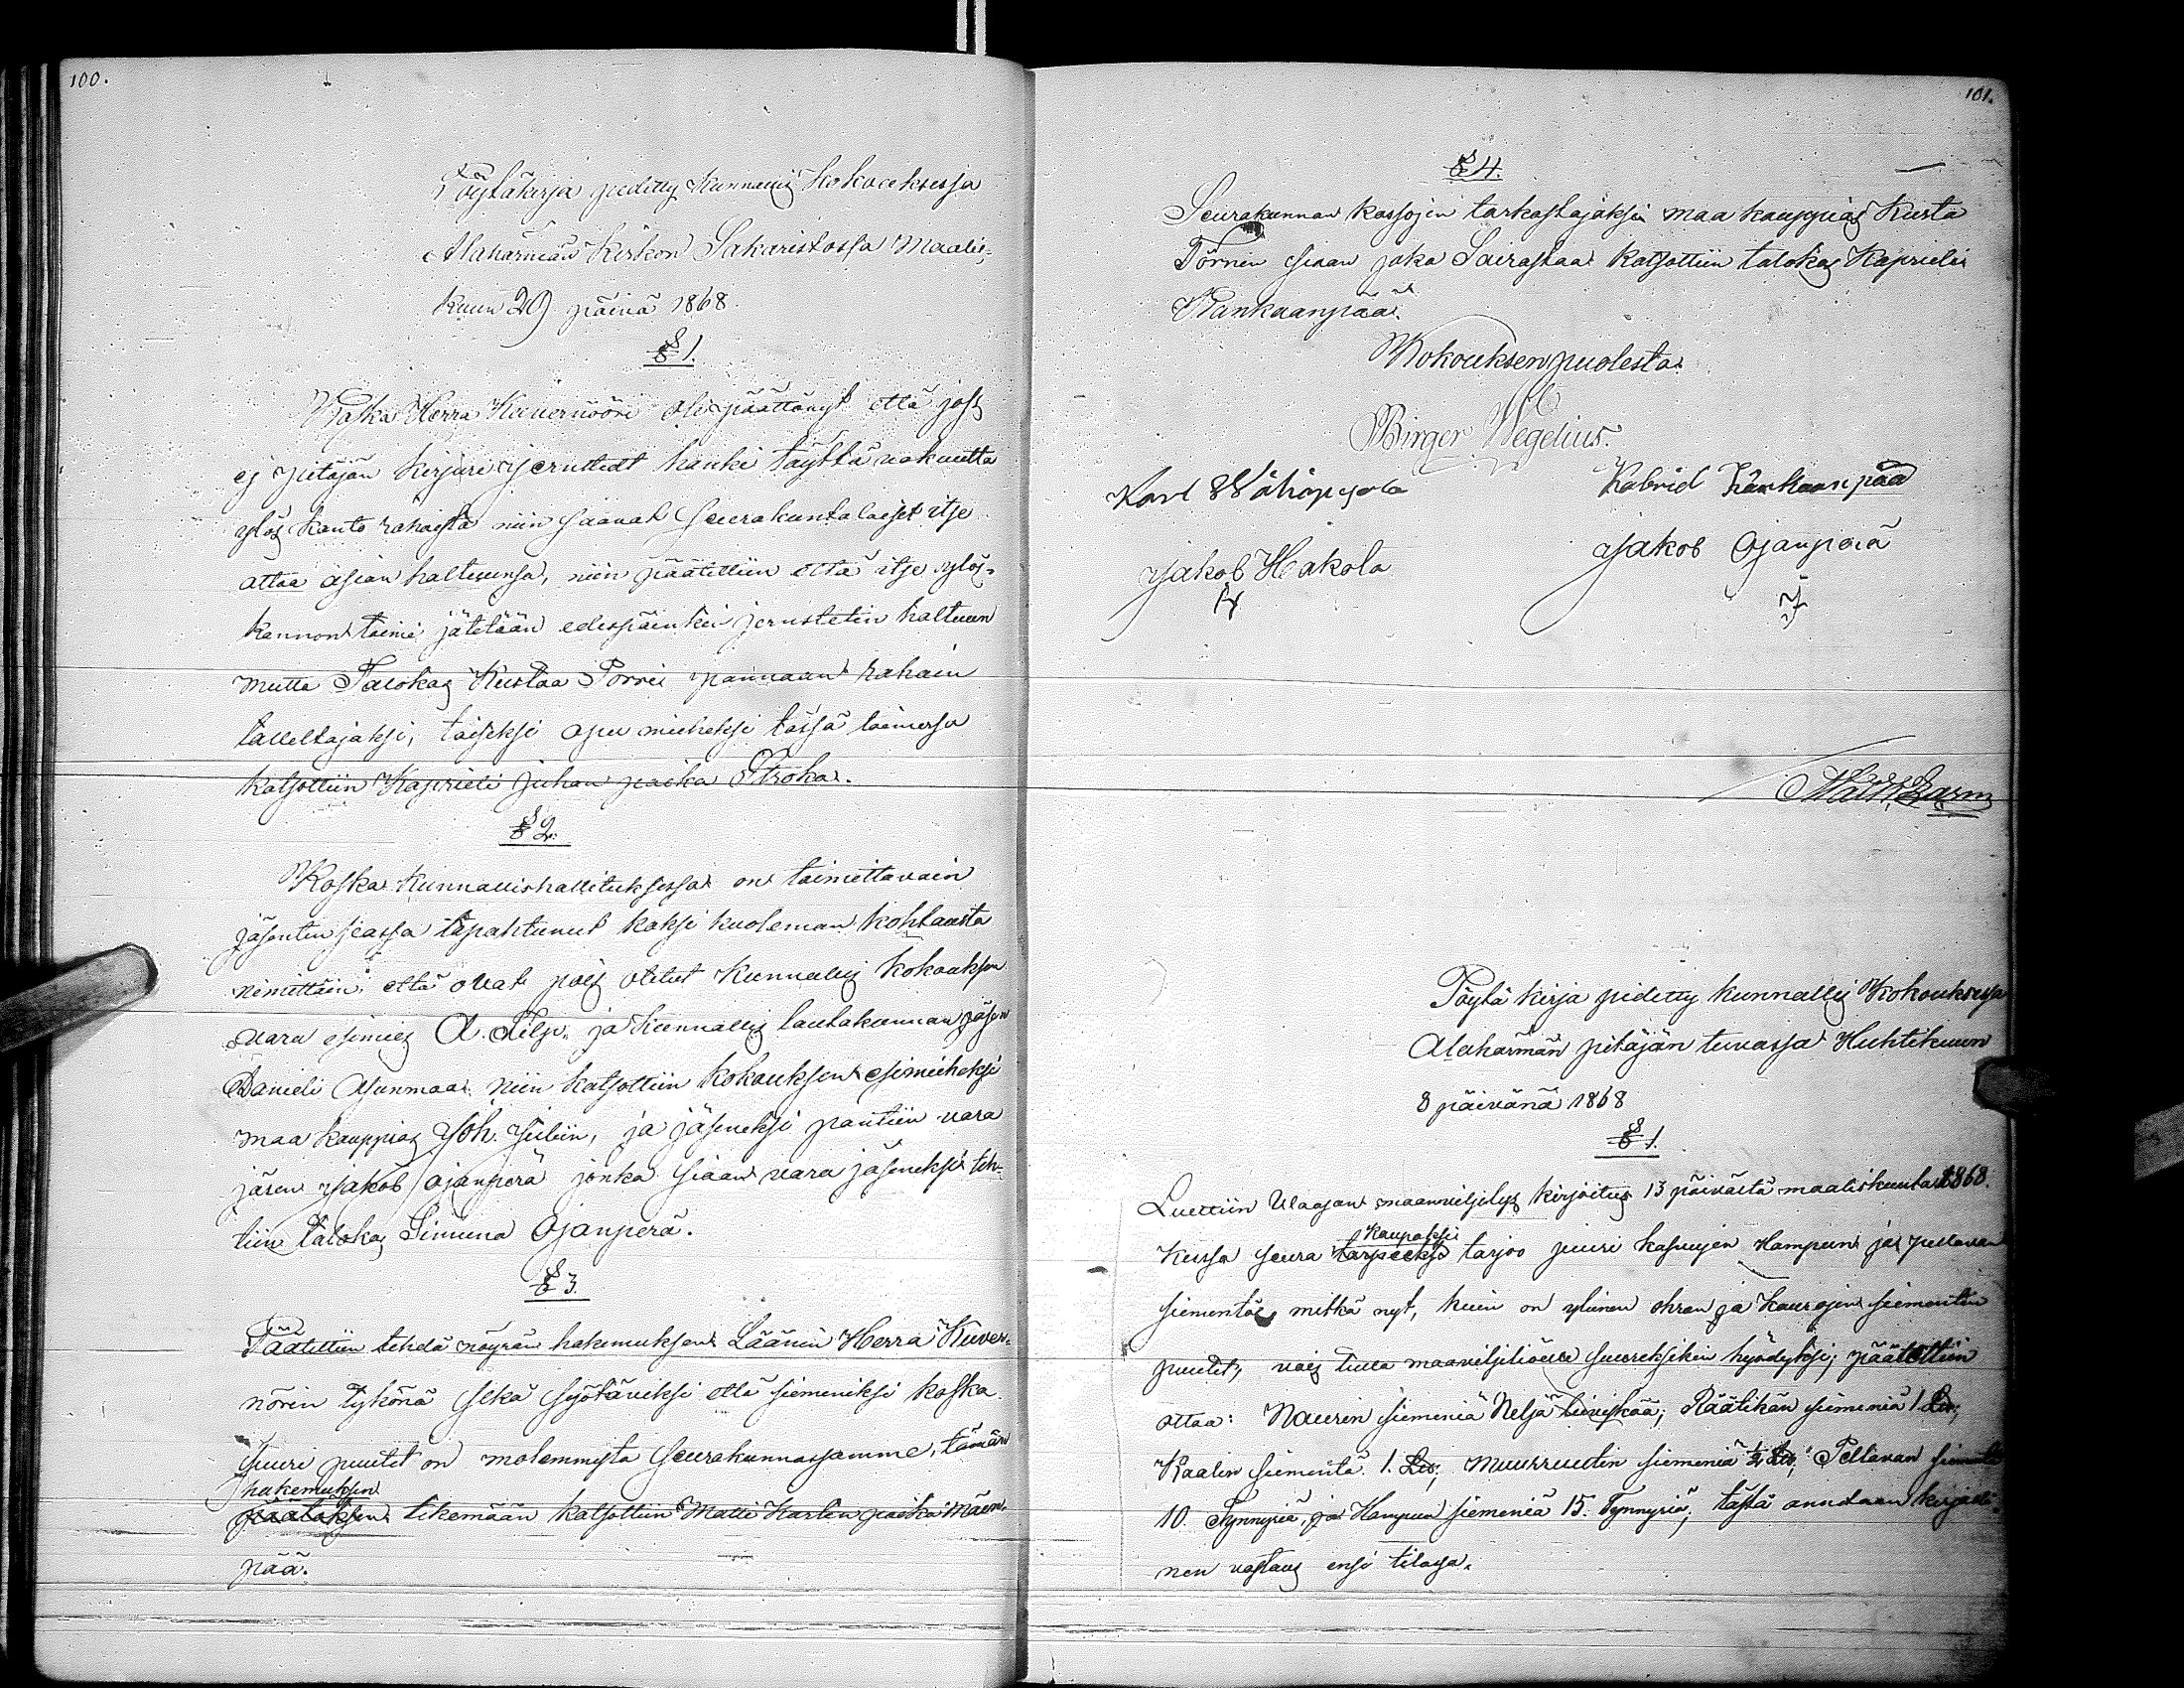 100.
Pöytäkirja pidetty Kunnallis Kokouksessa
Alahärmän Kirkon Sakaristossa Maalis-
kuun 29 päivä 1868.
§ 1.
Koska Herra Kuvernööri oli päättänyt että jos
ej pitäjän kirjuri jernstedt hanki täyttä vakuutta
ylös kanto rahoista niin saavat seurakuntalaiset itse
ottaa asian haltuunsa, niin päätettiin että itse ylös-
kannon toimi jätetään edespäinkin jernstetin haltuun
mutta Talokas Kustaa Porri pannaan rahain
talleltajaksi, toiseksi apu mieheksi tässä toimessa
katsottiin Kaprieli Juhan poika Stroka.
§ 2.
Koska Kunnallishallituksessa on toimittavain
jäsenten seassa tapahtunut kaksi kuoleman kohtausta
nimittäin: että ovat pois otetut Kunnallis kokouksen
vara esimies A. Filp. ja kunnallis lautakunnan jäsen
Danieli Asunmaa niin katsottiin kokouksen esimieheksi
maa kauppias Joh. Juliin, ja jäseneksi pantiin vara
jäsen Jakob Ojanperä jonka siaan vara jäseneksi teh-
tiin talokas Simuna Ojanperä.
§ 3.
Päätettiin tehdä nöyrän hakemuksen Läänin Herra Kuver-
nörin tykönä sekä syötäviksi että siemeniksi koska
suuri puutet on molemmista seurakunnassamme, tämän
hakemuksen
päätöksen tekemään katsottiin Matti Karlen poika Mäen-
pää.
101.
§ 4.
Seurakunnan kassojen tarkastajaksi maa kauppias Kusta
Törnin siaan joka Sairastaa katsottiin talokas Kaprieli
Kankaanpää.
Kokouksen puolesta
Birger Wegelius.
Karl Wähäpesola Kabriel Kankaanpää
Jakob Hakola Jakob Ojanperä
Töytä kirja pidetty kunnallis Kokouksessa
Alahärmän pitäjän tuvassa Huhtikuun
8 päivänä 1868
§ 1.
Luettiin Waasan maanviljelys kirjoitus 13 päivästä maaliskuuta 1868.
kaupaksi
Kussa seura tarpeeksi tarjoo juuri kasvujen Hampun ja pellavan
siementä mitkä nyt, kuin on yleinen ohran ja kaurojen siementen
puutet, vois tulla maanviljeliöille suureksikin hyödyksi; päätettiin
ottaa: Naurin siemeniä Neljä leiviskää; Räätikän siemeniä 1 Lv;
Kaalin siementä 1. Lv; muurruutin siemeniä ½ Lv; Pellavan siementä
10 Tynnyriä, ja Hampun siemeniä 15. Tynnyriä; tästä annetaan kirjalli-
nen vastaus ensi tilassa.